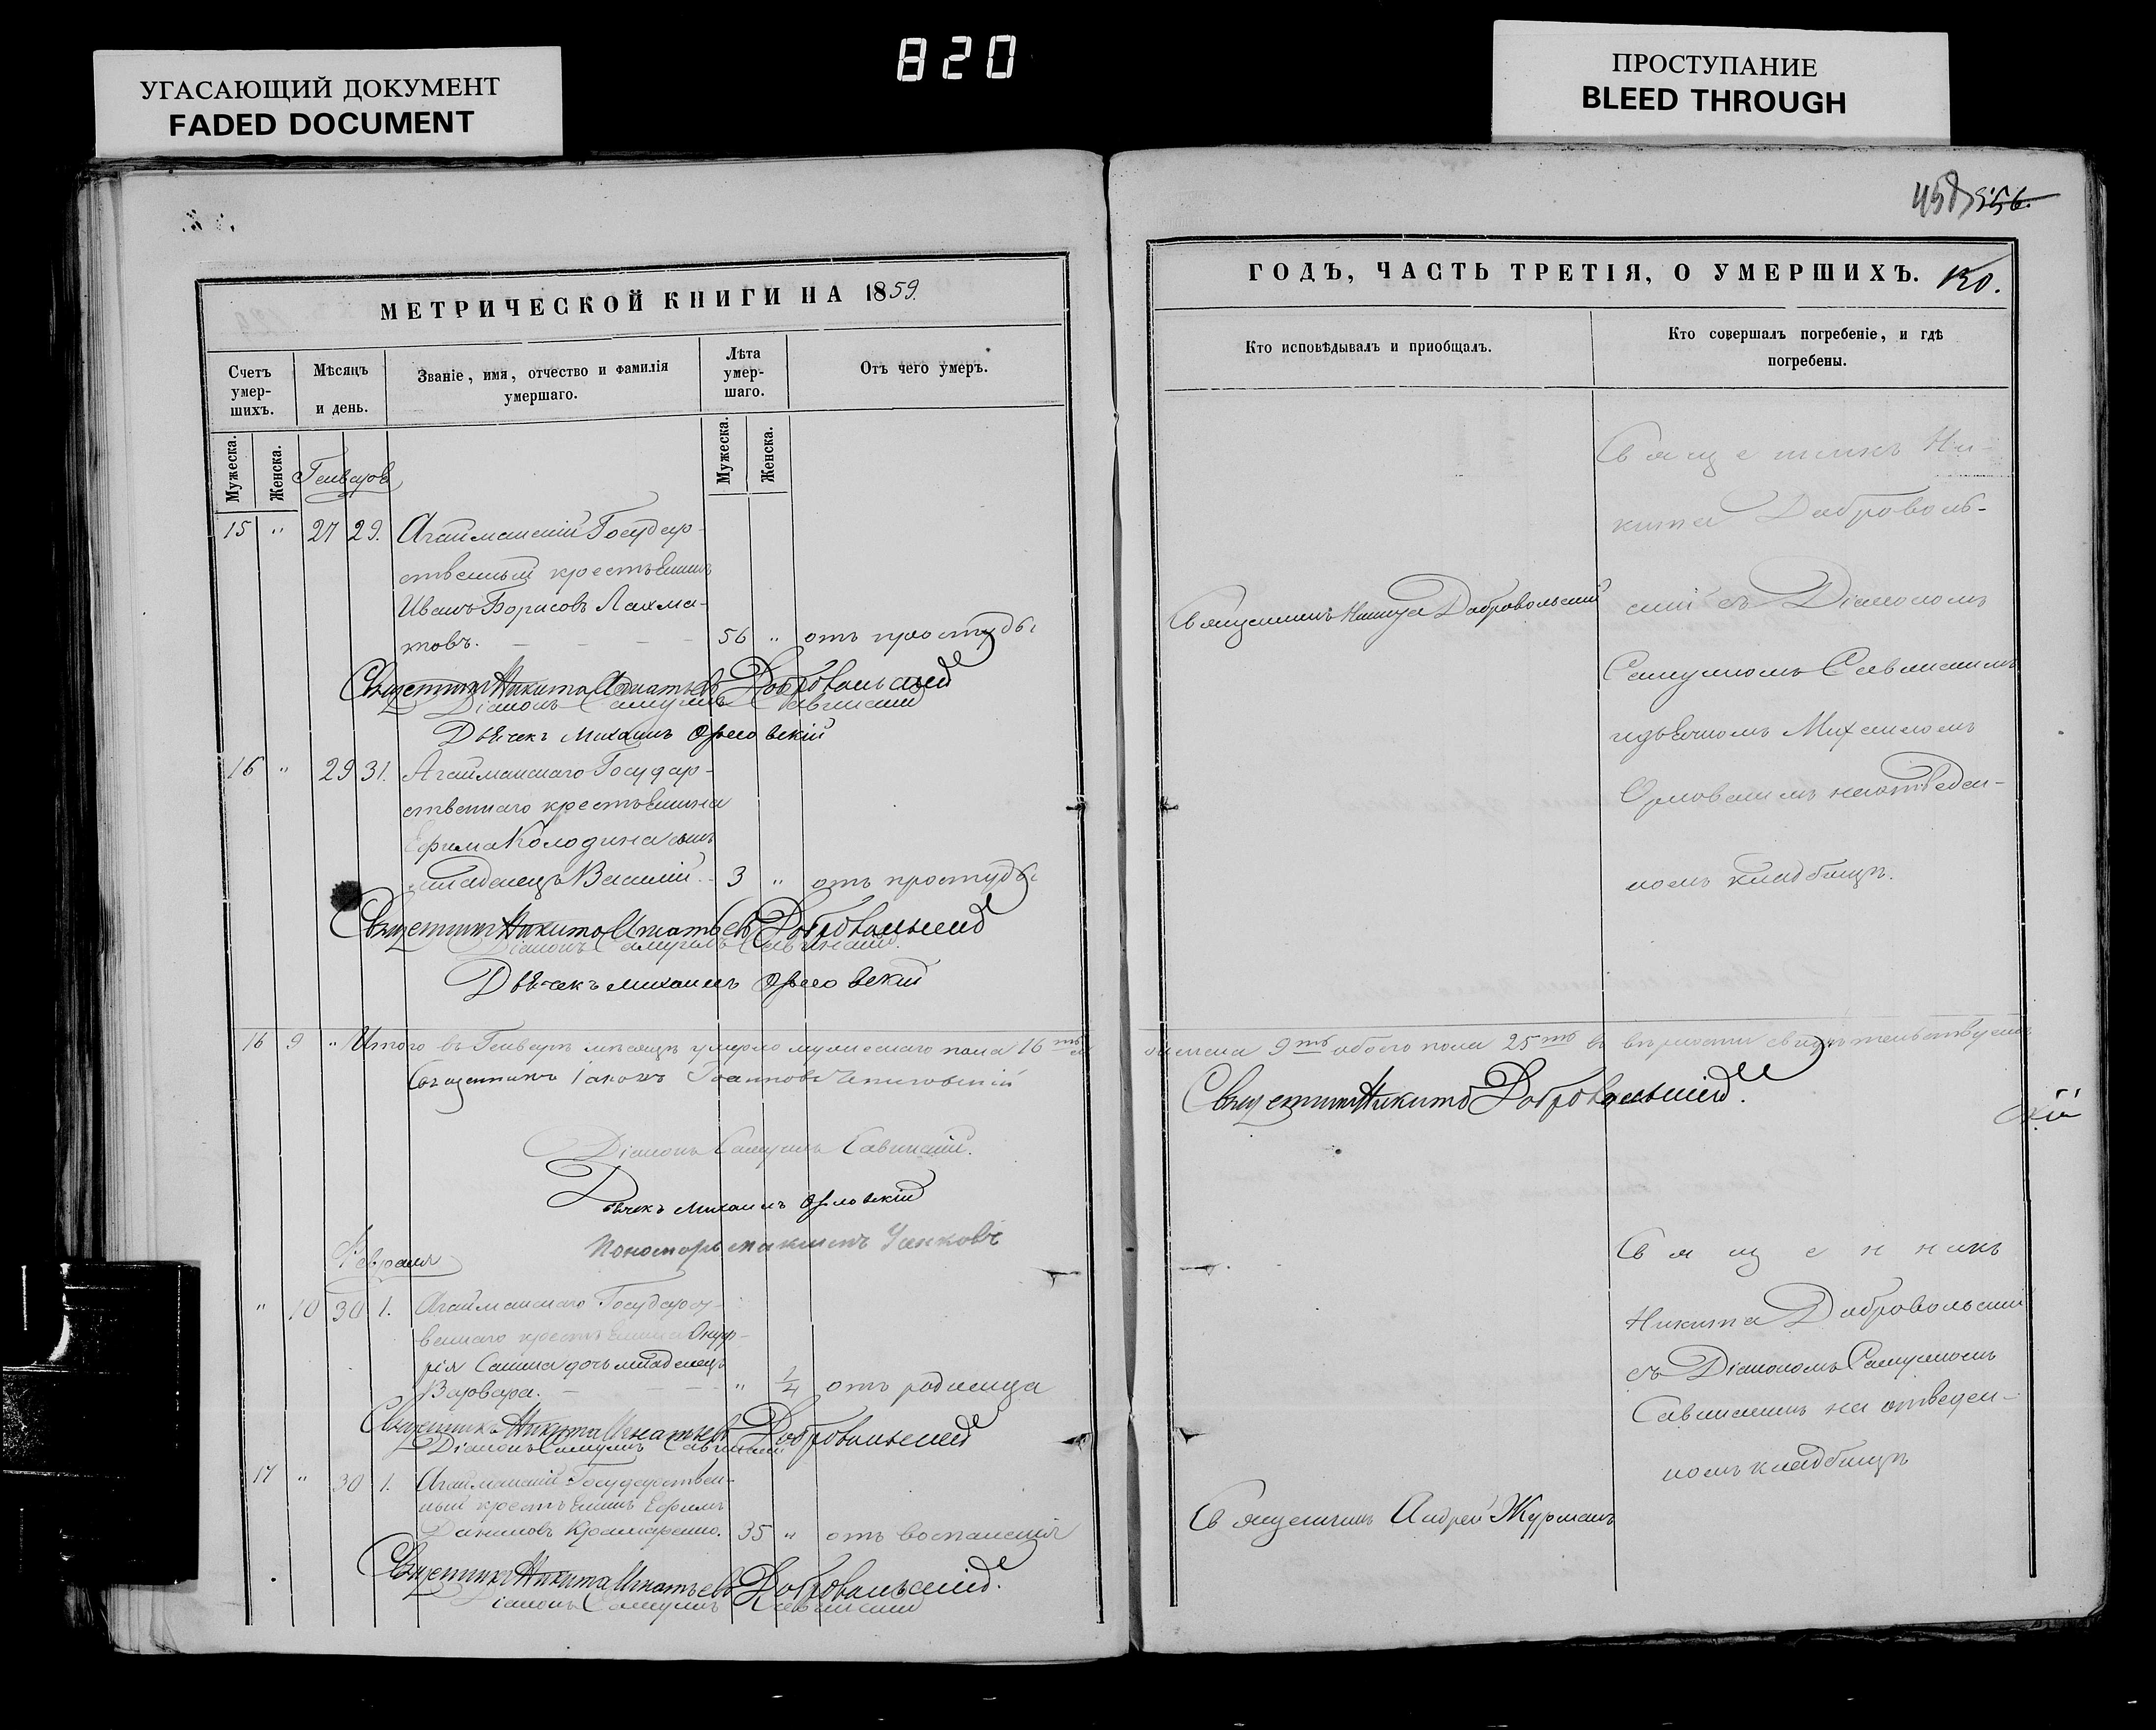 820
УГАСАЮЩИЙ ДОКУМЕНТ
FADED DOCUMENT
ПРОСТУПАНИЕ
BLEED THROUGH
МЕТРИЧЕСКОЙ КНИГИ НА 1859.
Счетъ умер-шихъ.
Мѣсяцъ и день.
Званіе, имя, отчество и фамилія
умершаго.
Лѣта умер-шаго.
Отъ чего умеръ.
Мужеска.
Женска.
Мужеска.
Женска.
Генваря
15 " 27 29. Агайманскій Государ-
ственный крестьянинъ
Иванъ Борисовъ Лахма-
товъ. 56 " отъ простуды
Священникъ Никита Игнатьевъ Добровольскій
Діаконъ Самуилъ Савинскій
Дьячекъ Михаилъ Орловскій
16 " 29 31. Агайманскаго Государ-
ственнаго крестьянина
Ефима Колодина сынъ
младенецъ Василій. 3 " отъ простуды
Священникъ Никита Игнатьевъ Добровольскій
Діаконъ Самуилъ Савинскій.
Дьячекъ Михаилъ Орловскій
16 9 " Итого въ Генварѣ мѣсяцѣ умерло мужескаго пола 16ть
Священникъ Іаковъ Іоанновъ
Діаконъ Самуилъ Савинскій.
Дьячекъ Михаилъ Орловскій
Пономарь
Февраля
" 10 30 1. Агайманскаго Государст-
веннаго крестьянина Онуф-
рія дочь младенецъ
Варвара. " 1/4 отъ родимца
Священникъ Никита Игнатьевъ Добровольскій
Діаконъ Самуилъ Савинскій
17 " 30 1. Агайманскій Государствен-
ный крестьянинъ Ефимъ
Даниловъ Крамаренко. 35 " отъ воспаленія
Священникъ Никита Игнатьевъ Добровольскій.
Діаконъ Самуилъ Савинскій
458 556.
ГОДЪ, ЧАСТЬ ТРЕТІЯ, О УМЕРШИХЪ. 130.
Кто исповѣдывалъ и пріобщалъ.
Кто совершалъ погребеніе, и гдѣ
погребены.
Священникъ Ни-
кита Доброволь-
Священникъ Никита Добровольскій
скій съ Діакономъ
Самуиломъ Савинскимъ
и дьячкомъ Михаиломъ
Орловскимъ на отведен-
номъ кладбищѣ.
женска 9ть обоего пола 25ть въ вѣрности свидѣтельствуемъ
Священникъ Никита Добровольскій.
скій
Священникъ
Никита Добровольскій
съ Діакономъ Самуиломъ
Савинскимъ на отведен-
номъ кладбищѣ
Священникъ Андрей Журманъ